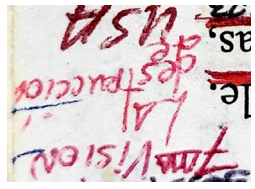 7ma VISION
LA
destruccion
de
USA
le.
as,